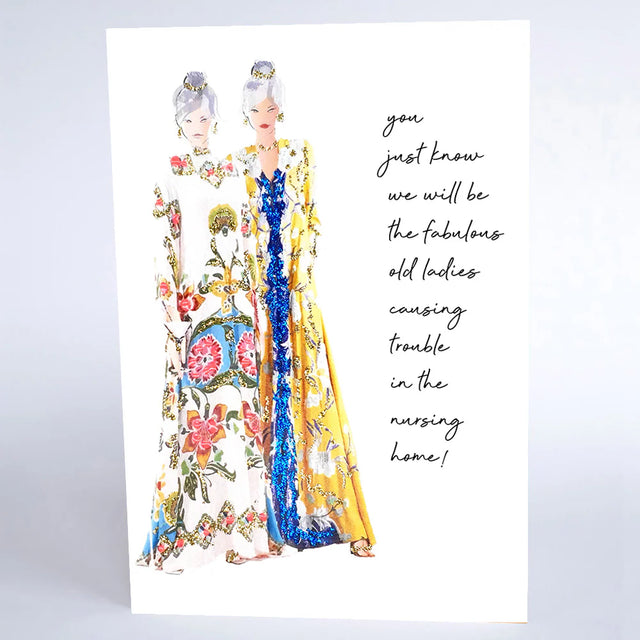 you
just know
we will be
the fabulous
old ladies
causing
trouble
in the
nursing
home!